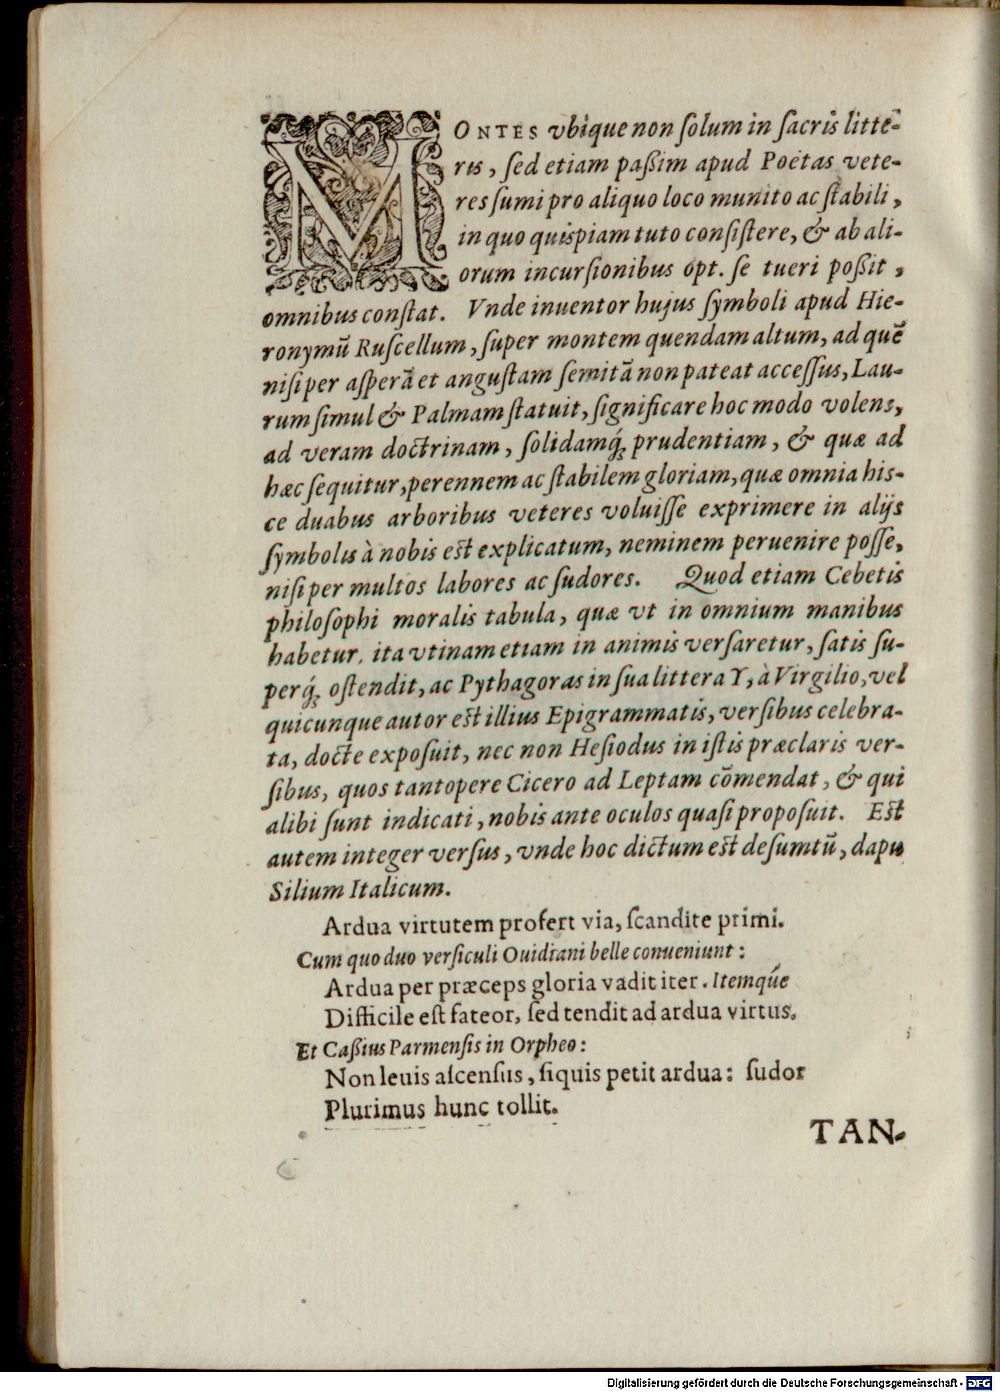 MONTES vbique non ſolum in ſacris litte-
ris, ſed etiam paßim apud Poëtas vete-
res ſumi pro aliquo loco munito ac ſtabili,
in quo quispiam tuto conſiſtere, & ab ali-
orum incurſionibus opt. ſe tueri poßit,
omnibus conſtat. Vnde inuentor hujus ſymboli apud Hie-
ronymū Ruſcellum, ſuper montem quendam altum, ad quē
niſi per aſperā et anguſtam ſemitā non pateat acceſſus, Lau-
rum ſimul & Palmam ſtatuit, ſignificare hoc modo volens,
ad veram doctrinam, ſolidamq́; prudentiam, & quæ ad
hæc ſequitur, perennem ac ſtabilem gloriam, quæ omnia his-
ce duabus arboribus veteres voluiſſe exprimere in alijs
ſymbolis à nobis eſt explicatum, neminem peruenire poſſe,
niſi per multos labores ac ſudores. Quod etiam Cebetis
philoſophi moralis tabula, quæ vt in omnium manibus
habetur, ita vtinam etiam in animis verſaretur, ſatis ſu-
perq́; oſtendit, ac Pythagoras in ſua littera Y, à Virgilio, vel
quicunque autor eſt illius Epigrammatis, verſibus celebra-
ta, docte expoſuit, nec non Heſiodus in iſtis præclaris ver-
ſibus, quos tantopere Cicero ad Leptam cōmendat, & qui
alibi ſunt indicati, nobis ante oculos quaſi propoſuit. Eſt
autem integer verſus, vnde hoc dictum eſt deſumtū, dapu
Silium Italicum.
Ardua virtutem profert via, ſcandite primi.
Cum quo duo verſiculi Ouidiani belle conueniunt:
Ardua per præceps gloria vadit iter. Itemqúe
Difficile eſt fateor, ſed tendit ad ardua virtus.
Et Caßius Parmenſis in Orpheo:
Non leuis aſcenſus, ſiquis petit ardua: ſudor
Plurimus hunc tollit.
TAN-
Digitalisierung gefördert durch die Deutsche Forschungsgemeinschaft - DFG